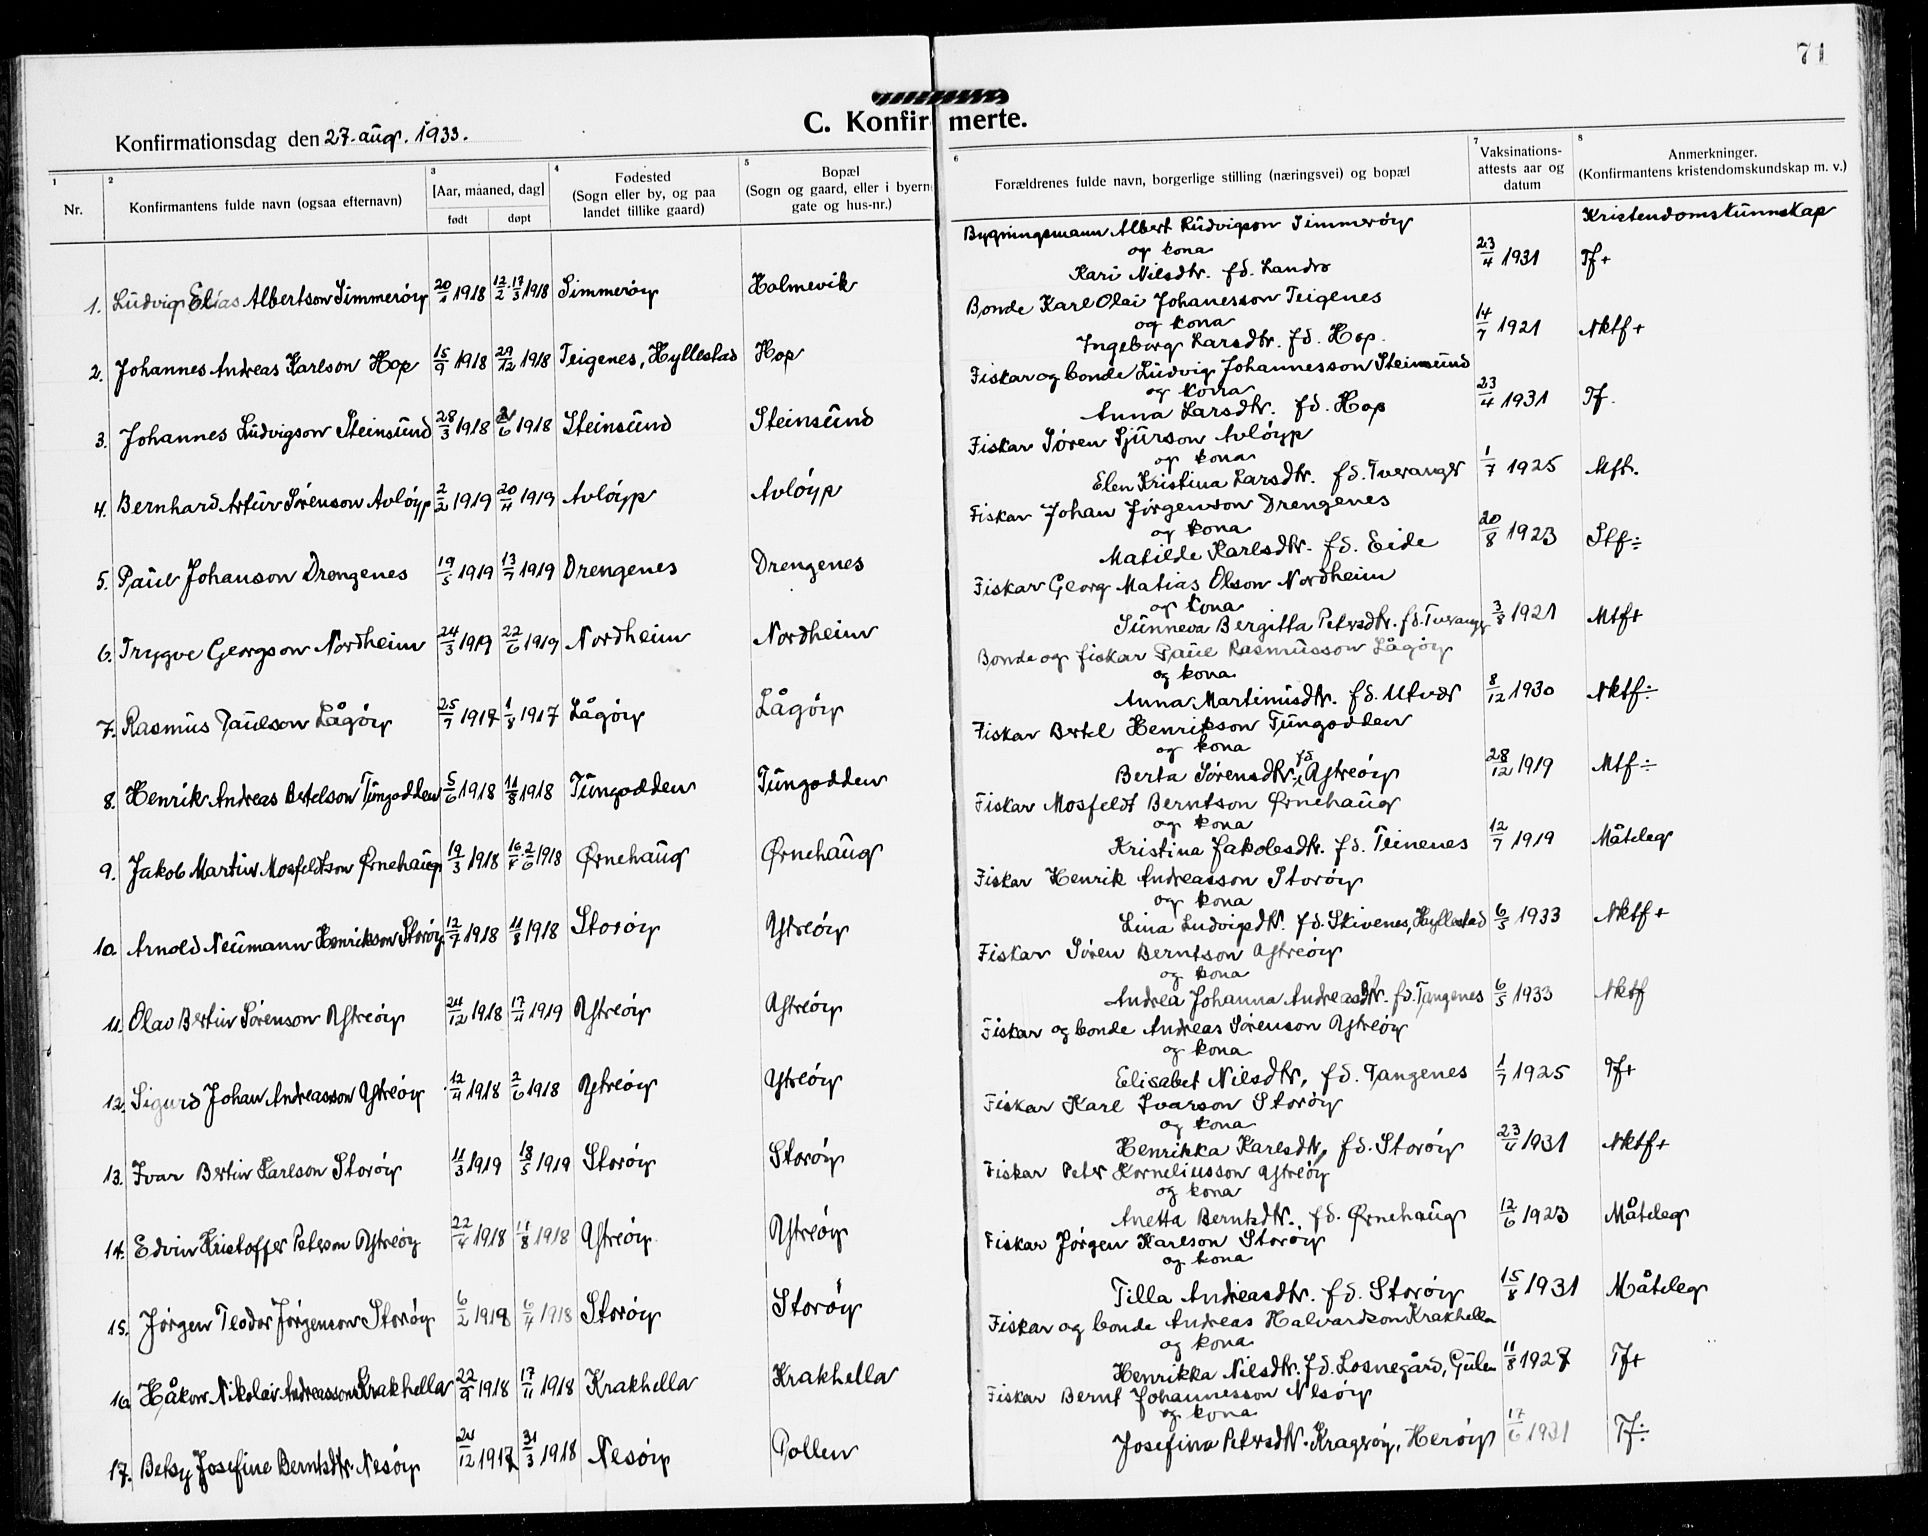 71
C. Konfirmerte.
Konfirmationsdag den 27. aug. 1933.
1 2 3 4 5 6 7 8
Nr.
Konfirmantens fulde navn (ogsaa efternavn)
[Aar, maaned, dag]
født døpt
Fødested
(Sogn eller by, og paa
landet tillike gaard)
Bopæl
(Sogn og gaard, eller i byern
gate og hus-nr.)
Forældrenes fulde navn, borgerlige stilling (næringsvei) og bopæl
Vaksinations-
attests aar og
datum
Anmerkninger.
(Konfirmantens kristendomskundskap m. v.)
Kristendomskunnskap
Bygningsmann Albert Ludvigson Simmerøy
og kona
Kari Nilsdtr. fd. Landro 23/4 1931 Tf+
1. Ludvig Elias Albertson Simmerøy 20/1 1918 12/2 17/3 1918 Simmerøy Holmevik
Bonde Karl Olai Johanesson Teigenes
og kona
Ingeborg Larsdtr. fd. Hop. 14/7 1921 Nktf+
2. Johannes Andreas Karlson Hop 15/9 1918 29/12 1918 Teigenes, Hyllestad Hop
Fiskar og bonde Ludvig Johannesson Steinsund
og kona
Anna Larsdtr. fd. Hop 23/4 1931 Tf.
3. Johannes Ludvigson Steinsund 28/3 1918 2/6 1918 Steinsund Steinsund
Fiskar Søren Sjurson Avløyp
og kona
Elen Kristina Larsdtr. fd. Tveranger 1/7 1925 Mtf.
4. Bernhard Artur Sørenson Avløyp 2/2 1919 20/4 1919 Avløyp Avløyp
Fiskar Johan Jørgenson Drengenes
og kona
Matilde Karlsdtr. fd. Eide 20/8 1923 Stf÷
5. Paul Johanson Drengenes 19/5 1919 13/7 1919 Drengenes Drengenes
Fiskar Georg Matias Olson Nordheim
og kona
Sunneva Bergitta Petersdtr. fd. Tveranger 3/8 1921 Mtf+
6. Trygve Georgson Nordheim 24/3 1919 22/6 1919 Nordheim Nordheim
Bonde og fiskar Paul Rasmusson Lågøy
og kona
Anna Martinusdtr. fd. Utvær 8/12 1930 Nktf÷
7. Rasmus Paulson Lågøy 25/7 1917 1/8 1917 Lågøy Lågøy
Fiskar Bertel Henrikson Tungodden
og kona
Berta Sørensdtr. fd Ytreøy 28/12 1919 Mtf÷
8. Henrik Andreas Bertelson Tungodden 5/6 1918 11/8 1918 Tungodden Tungodden
Fiskar Mosfeldt Berntson Ørnehaug
og kona
Kristina Jakobsdtr. fd. Teinenes 12/7 1919 Måteleg
9. Jakob Martin Mosfeldtson Ørnehaug 19/3 1918 2/6 1918 Ørnehaug Ørnehaug
Fiskar Henrik Andreasson Storøy
og kona
Lina Ludvigsdtr. fd. Skivenes, Hyllestad 6/5 1933 Nktf+
10. Arnold Neumann Henrikson Storøy 12/7 1918 11/8 1918 Storøy Ytreøy
Fiskar Søren Berntson Ytreøy
og kona
Andrea Johanna Andreasdtr. fd. Tangenes 6/5 1933 Nktf
11. Olav Bertin Sørenson Ytreøy 24/12 1918 17/4 1919 Ytreøy Ytreøy
Fiskar og bonde Andreas Sørenson Ytreøy
og kona
Elisabet Nilsdtr, fd. Tangenes 1/7 1925 Tf+
12. Sigurd Johan Andreasson Ytreøy 12/4 1918 2/6 1918 Ytreøy Ytreøy
Fiskar Karl Ivarson Storøy
og kona
Henrikka Karlsdtr, fd. Storøy 23/4 1931 Nktf+
13. Ivar Bertin Karlson Storøy 11/3 1919 18/5 1919 Storøy Storøy
Fiskar Peter Korneliusson Ytreøy
og kona
Anetta Berntsdtr., fd. Ørnehaug 12/6 1923 Måteleg
14. Edvin Kristoffer Peterson Ytreøy 22/4 1918 11/8 1918 Ytreøy Ytreøy
Fiskar Jørgen Karlson Storøy
og kona
Tilla Andreasdtr. fd. Storøy 15/8 1931 Måteleg
15. Jørgen Teodor Jørgenson Storøy 6/2 1918 6/4 1918 Storøy Storøy
Fiskar og bonde Andreas Halvardson Krakhella
og kona
Henrikka Nilsdtr. fd. Losnegård, Gulen 11/8 1927 Tf+
16. Håkon Nikolai Andreasson Krakhella 22/9 1918 17/11 1918 Krakhella Krakhella
Fiskar Bernt Johannesson Nesøy
og kona
Josefina Petersdtr. Kragsøy, Herøy 17/6 1931 Tf÷
17. Betsy Josefine Berntsdtr. Nesøy 24/12 1917 31/3 1918 Nesøy Pollen